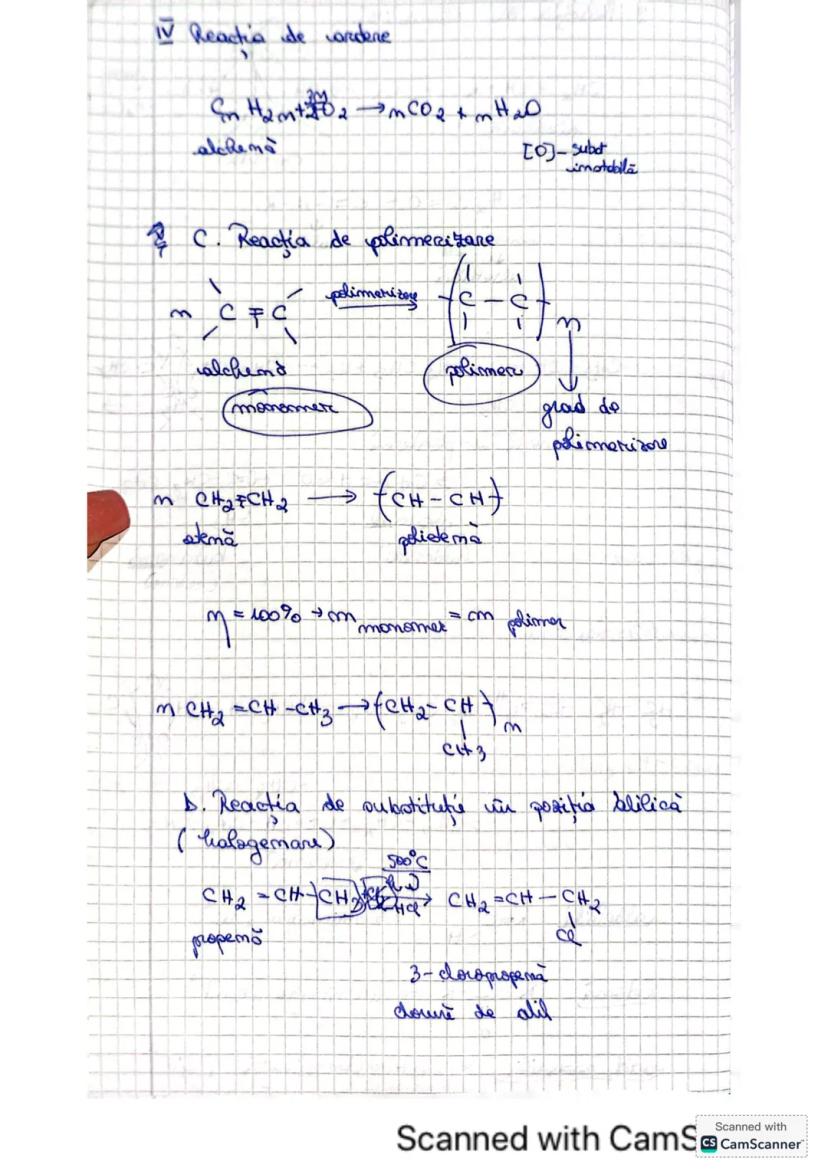 IV Reacția de ardere
CnH2n + 3n/2 O2 → nCO2 + nH2O
alchenă
[O] - subst
inotabilă
C. Reacția de polimerizare
n C = C polimerizare → ( C - C )n
alchenă polimer
monomer grad de
polimerizare
n CH2=CH2 → (CH - CH)
etenă polietenă
η = 100% → m monomer = m polimer
n CH2 = CH - CH3 → (CH2 - CH)n
CH3
D. Reacția de substituție în poziția alilică
(halogenare)
500°C
CH2 = CH - CH3 → CH2 = CH - CH2
-HCl
Cl
propenă
3-cloropropenă
clorură de alil
Scanned with CamS
Scanned with
CS CamScanner